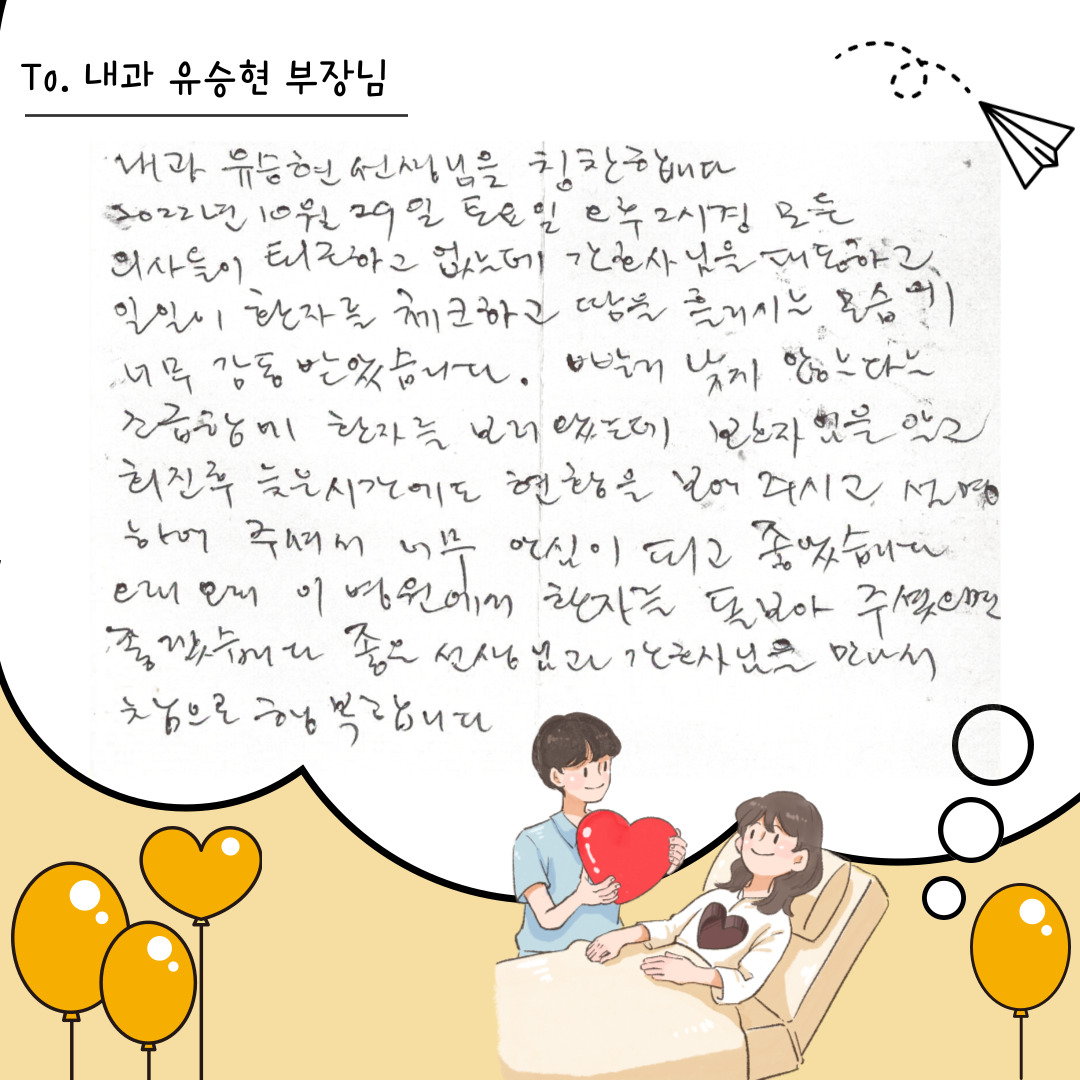 To. 내과 유승현 부장님
내과 유승현 선생님을 칭찬합니다
2022년 10월 29일 토요일 오후 2시경 모든
의사들이 퇴근하고 없는데 간호사님을 대동하고
일일이 환자를 체크하고 땀을 흘리시는 모습에
너무 감동 받았습니다.
조급함에 환자를 보러 왔는데
회진후 늦은시간에도 현황을 보여 주시고 설명
하여 주셔서 너무 안심이 되고 좋았습니다
오래 오래 이 병원에서 환자를 돌보아 주셨으면
좋겠습니다 좋은 선생님과 간호사님을 만나서
참으로 행복합니다